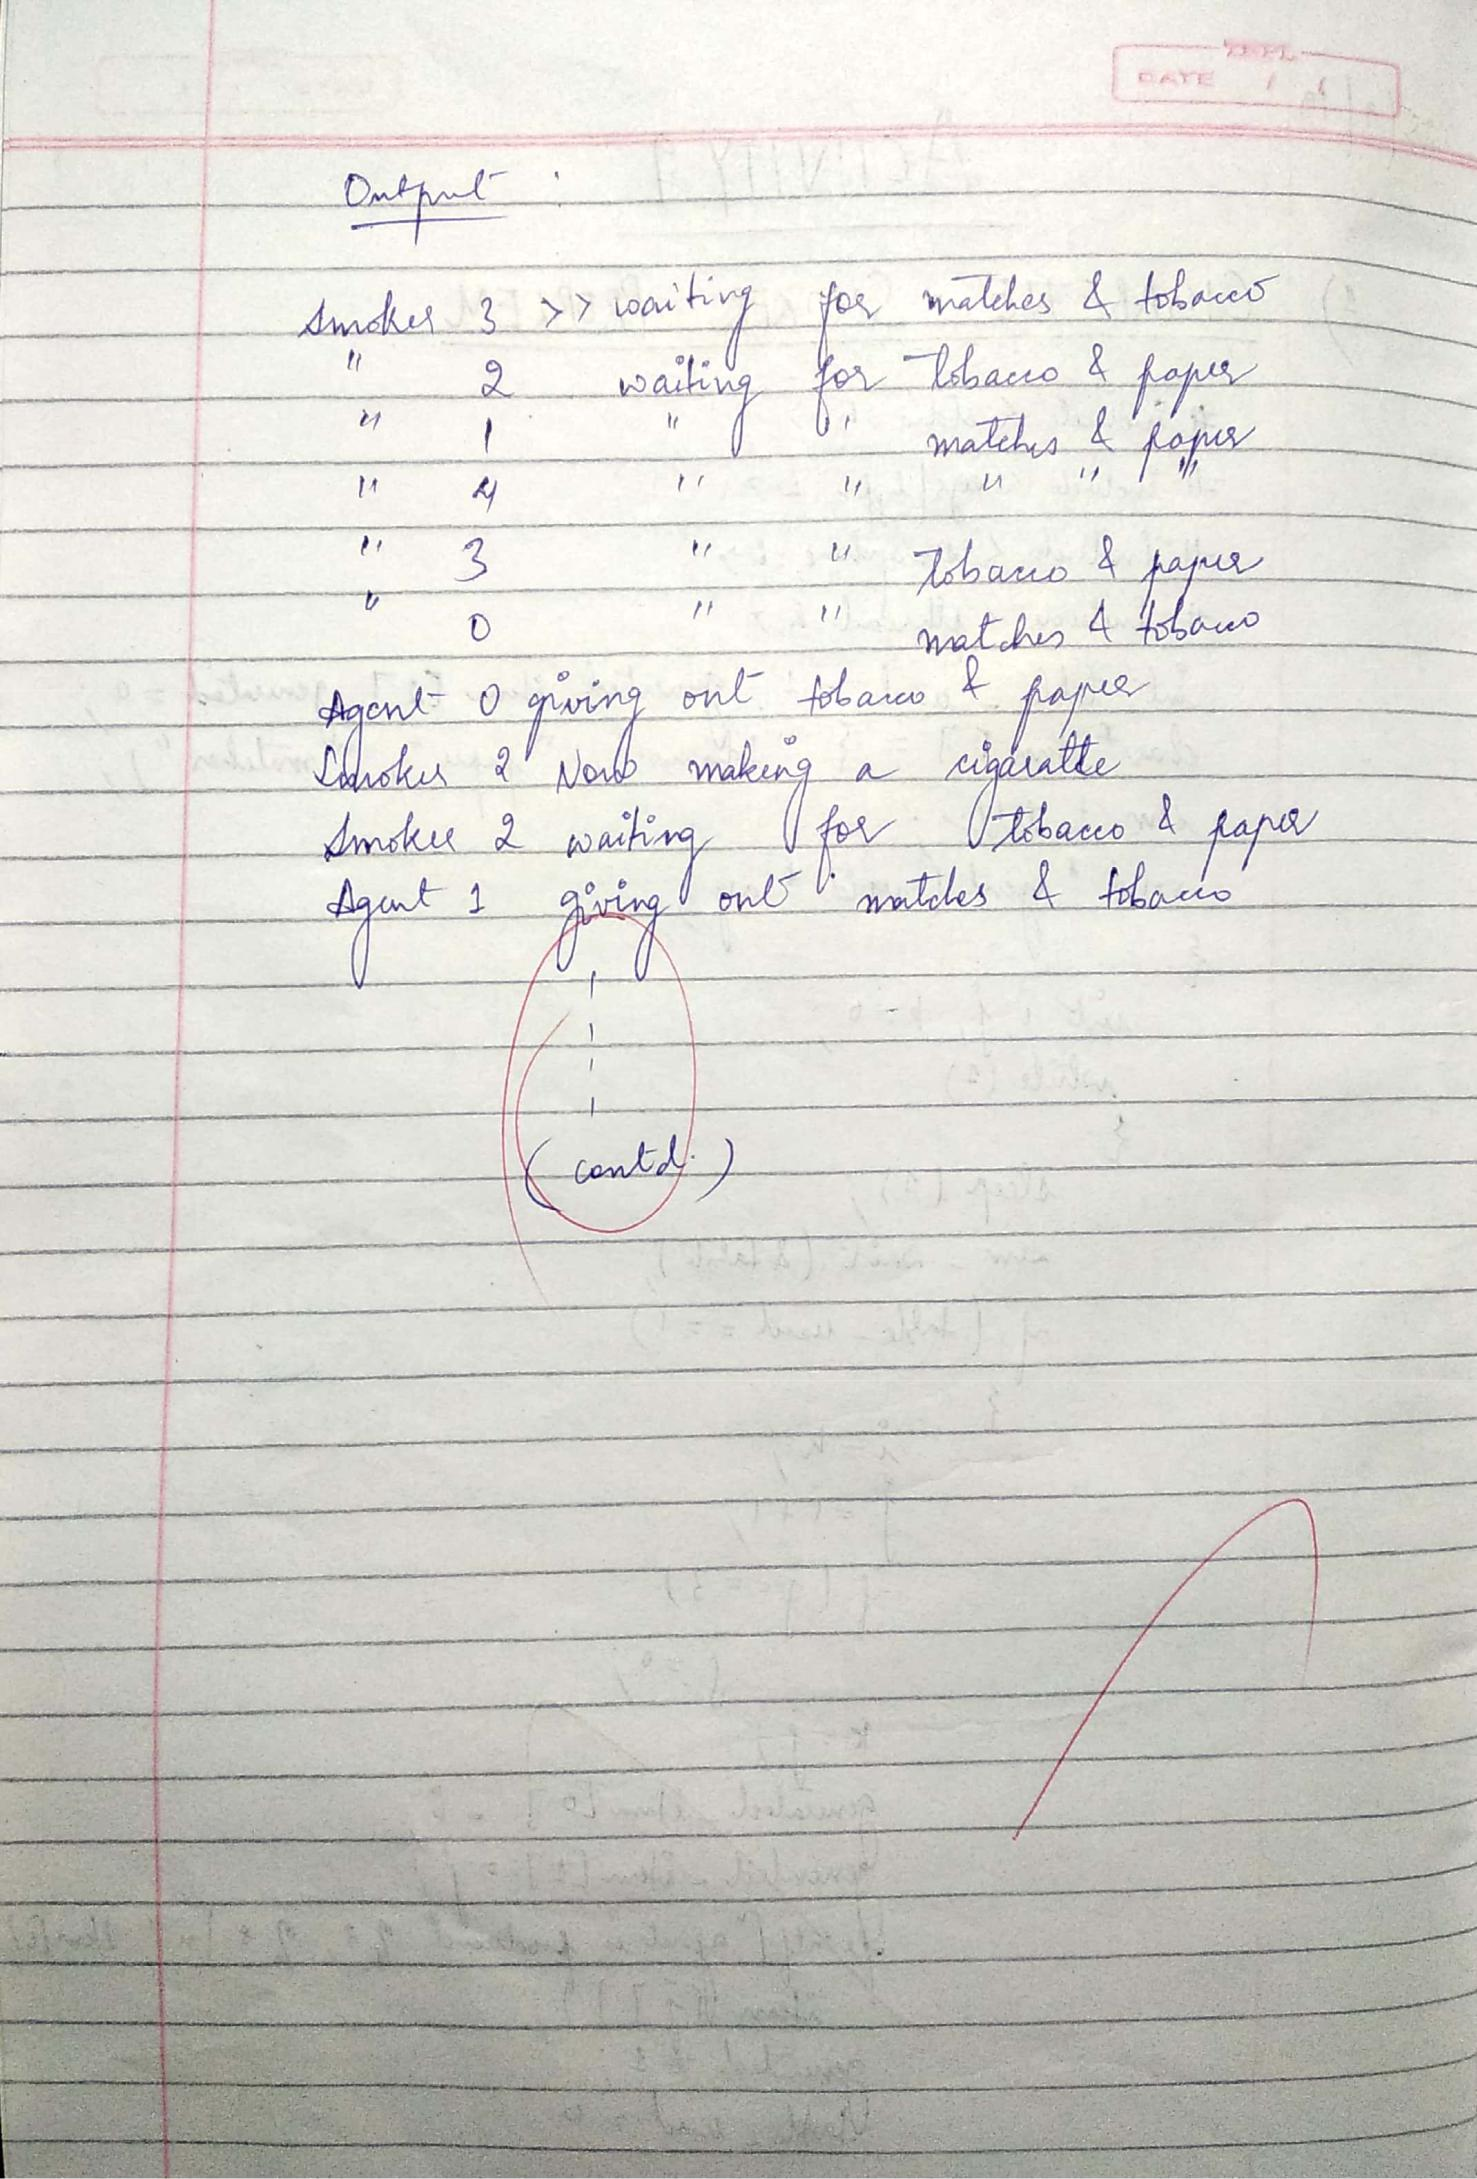 DATE / /
Output :
Smoker 3 >> waiting for matches & tobacco
" 2 waiting for tobacco & paper
" 1 " " matches & paper
" 4 " " " " "
" 3 " " tobacco & paper
" 0 " " matches & tobacco
Agent 0 giving out tobacco & paper
Smoker 2 Now making a cigaratte
Smoker 2 waiting for tobacco & paper
Agent 1 giving out matches & tobacco
( contd. )